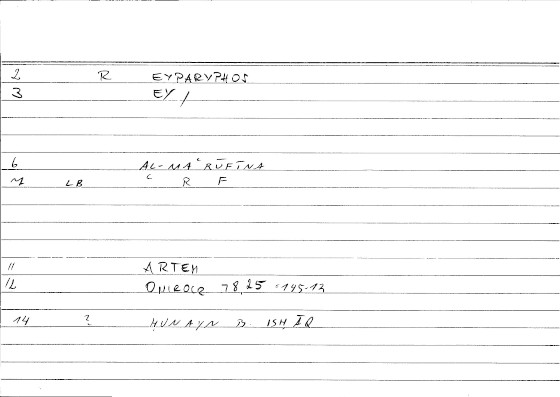 2 R EYPARYPHOS
3 EY /
6 AL-MAʿRŪFĪNA
7 LB ʿ R F
11 ARTEM
12 Oneirocr 78,25 - 195-13
14 ? ḤUNAYN B ISḤĀQ